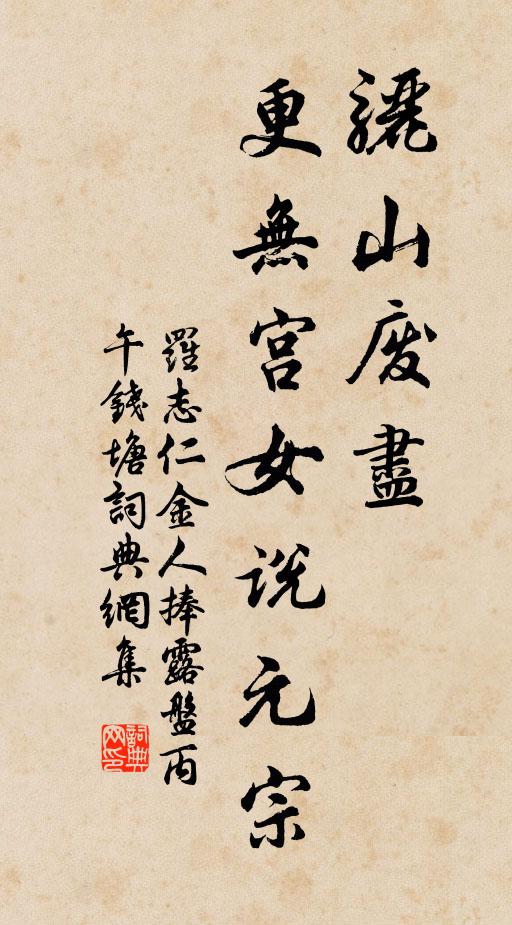 驪山废盡
更無宫女说元宗
羅志仁金人捧露盤丙
午錢塘詞典網集
詞典网印